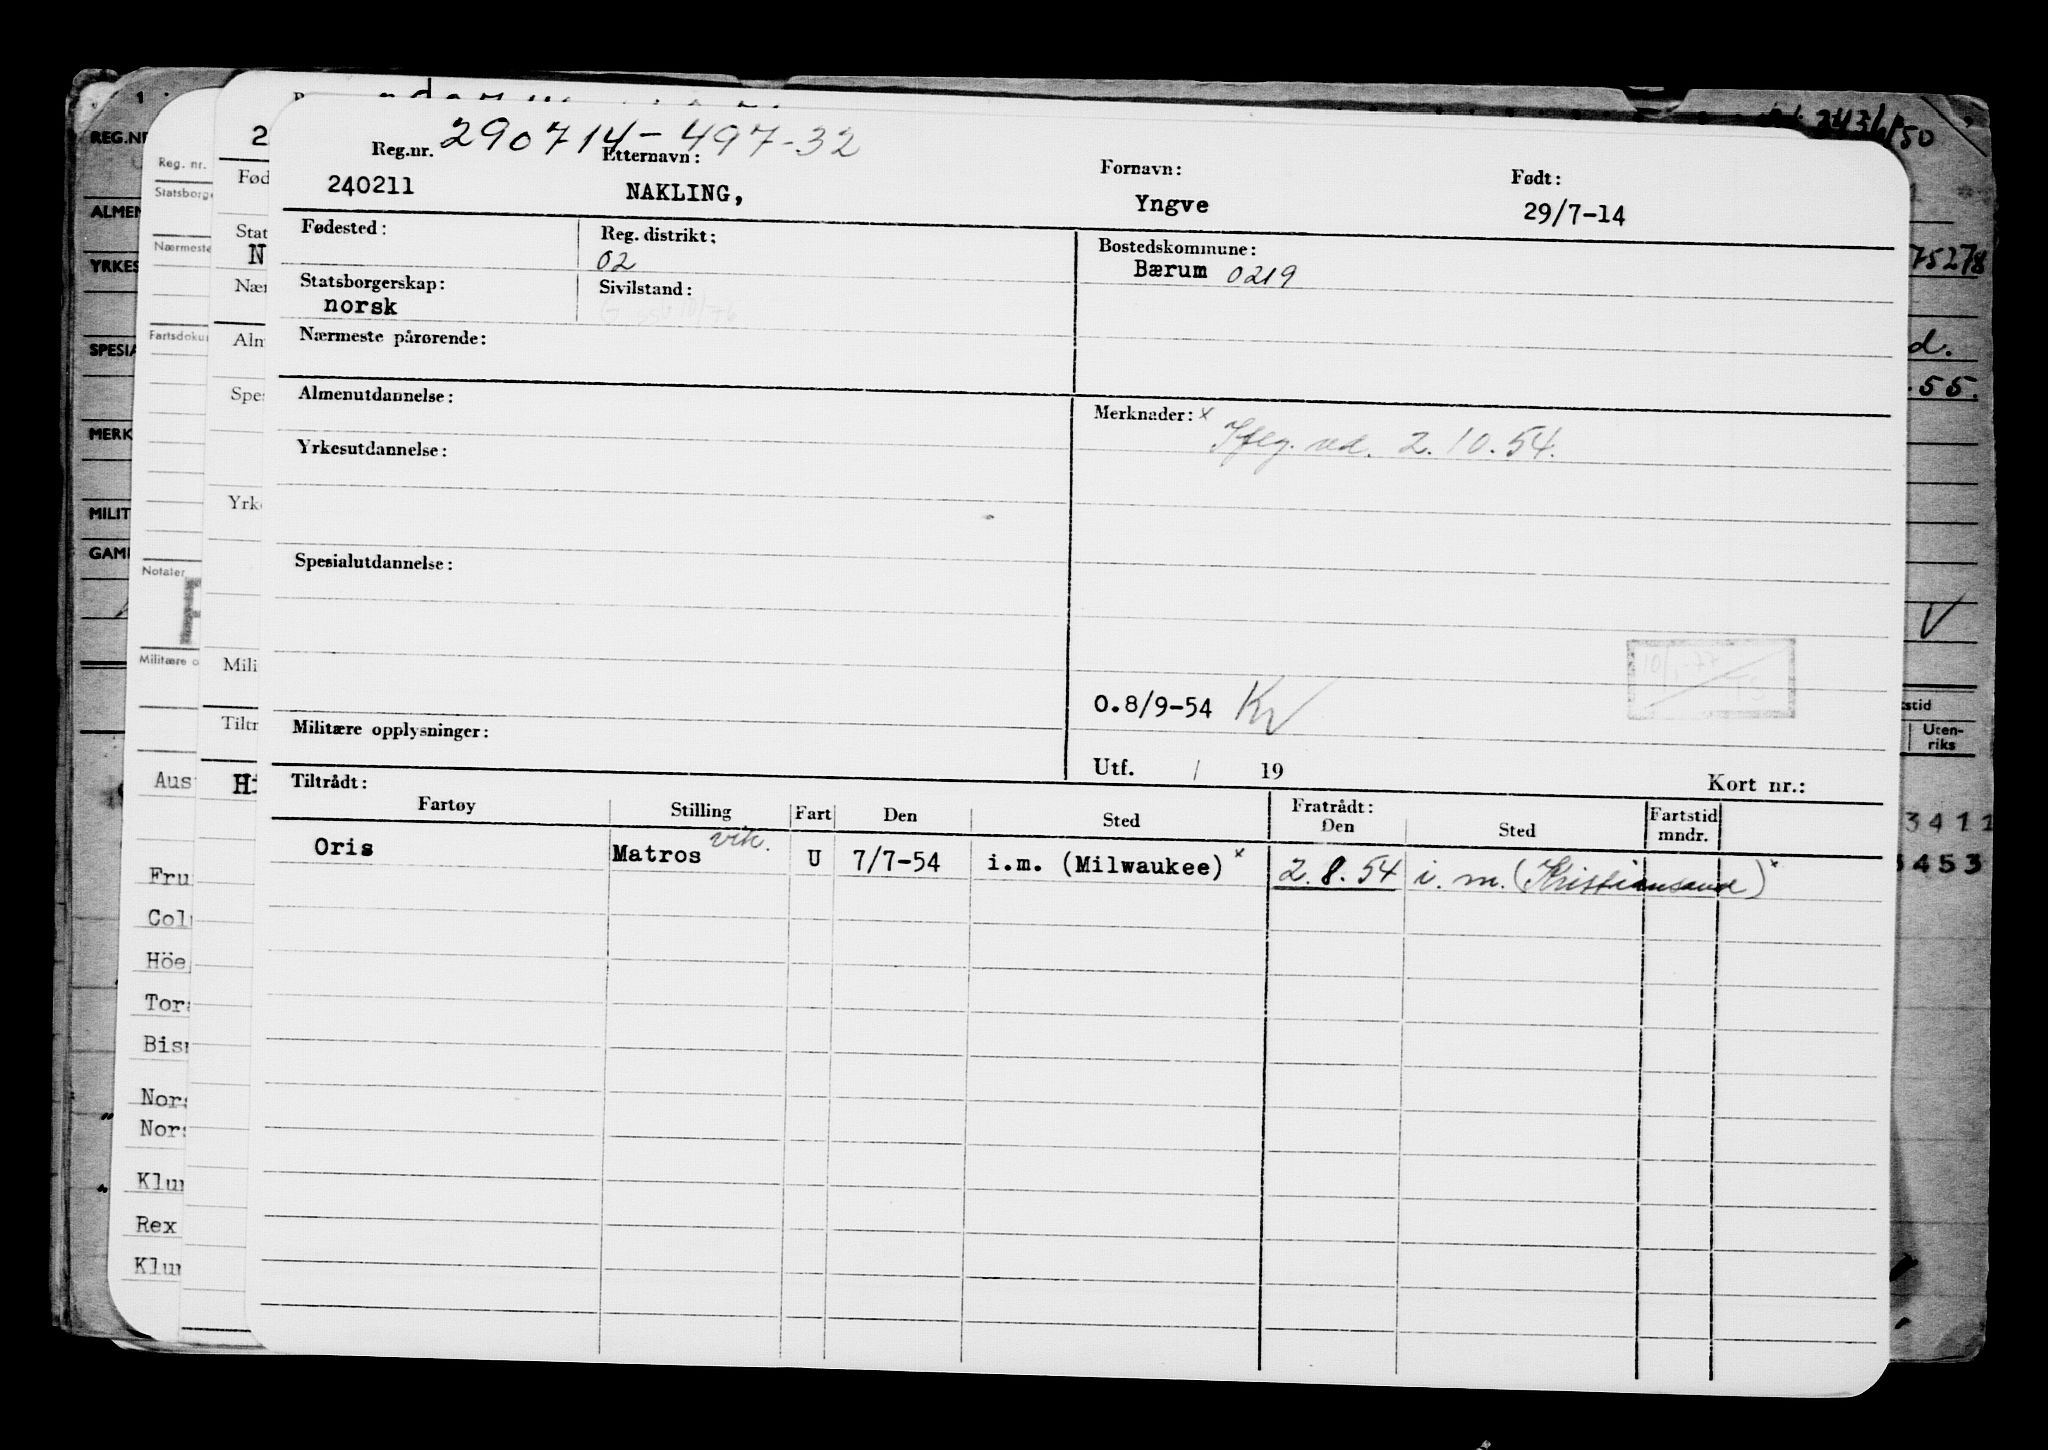 290714-497-32
Reg.nr. Etternavn: Fornavn: Født:
240211 NAKLING, Yngve 29/7-14
Fødested: Reg. distrikt: Bostedskommune:
02 Bærum 0219
Statsborgerskap: Sivilstand:
norsk
Nærmeste pårørende:
Almenutdannelse: Merknader: x
Iflg. vd. 2.10.54.
Yrkesutdannelse:
Spesialutdannelse:
O.8/9-54 Kv
Militære opplysninger:
Utf. / 19 Kort nr.:
Tiltrådt: Fratrådt:
Fartøy Stilling Fart Den Sted Den Sted Fartstid mndr.
Oris Matros vik. U 7/7-54 i.m. (Milwaukee) x 2.8.54 i.m. (Kristiansand) x
REG.NR
ALMEN
YRKES
SPESIA
MERK
MILIT
GAML
Reg. nr.
Statsborge
Nærmeste
Fartsdoku
Notater
Militære o
Aus
Fru
Col
Höe
Tora
Bis
Nors
Nors
Klun
Rex
Klun
2
Fød
Stat
N
Nær
Alm
Spes
Yrke
Mili
Tiltr
Hi
2436/50
75278
d.
.55.
V
stid
Uten-
riks
3411
3453